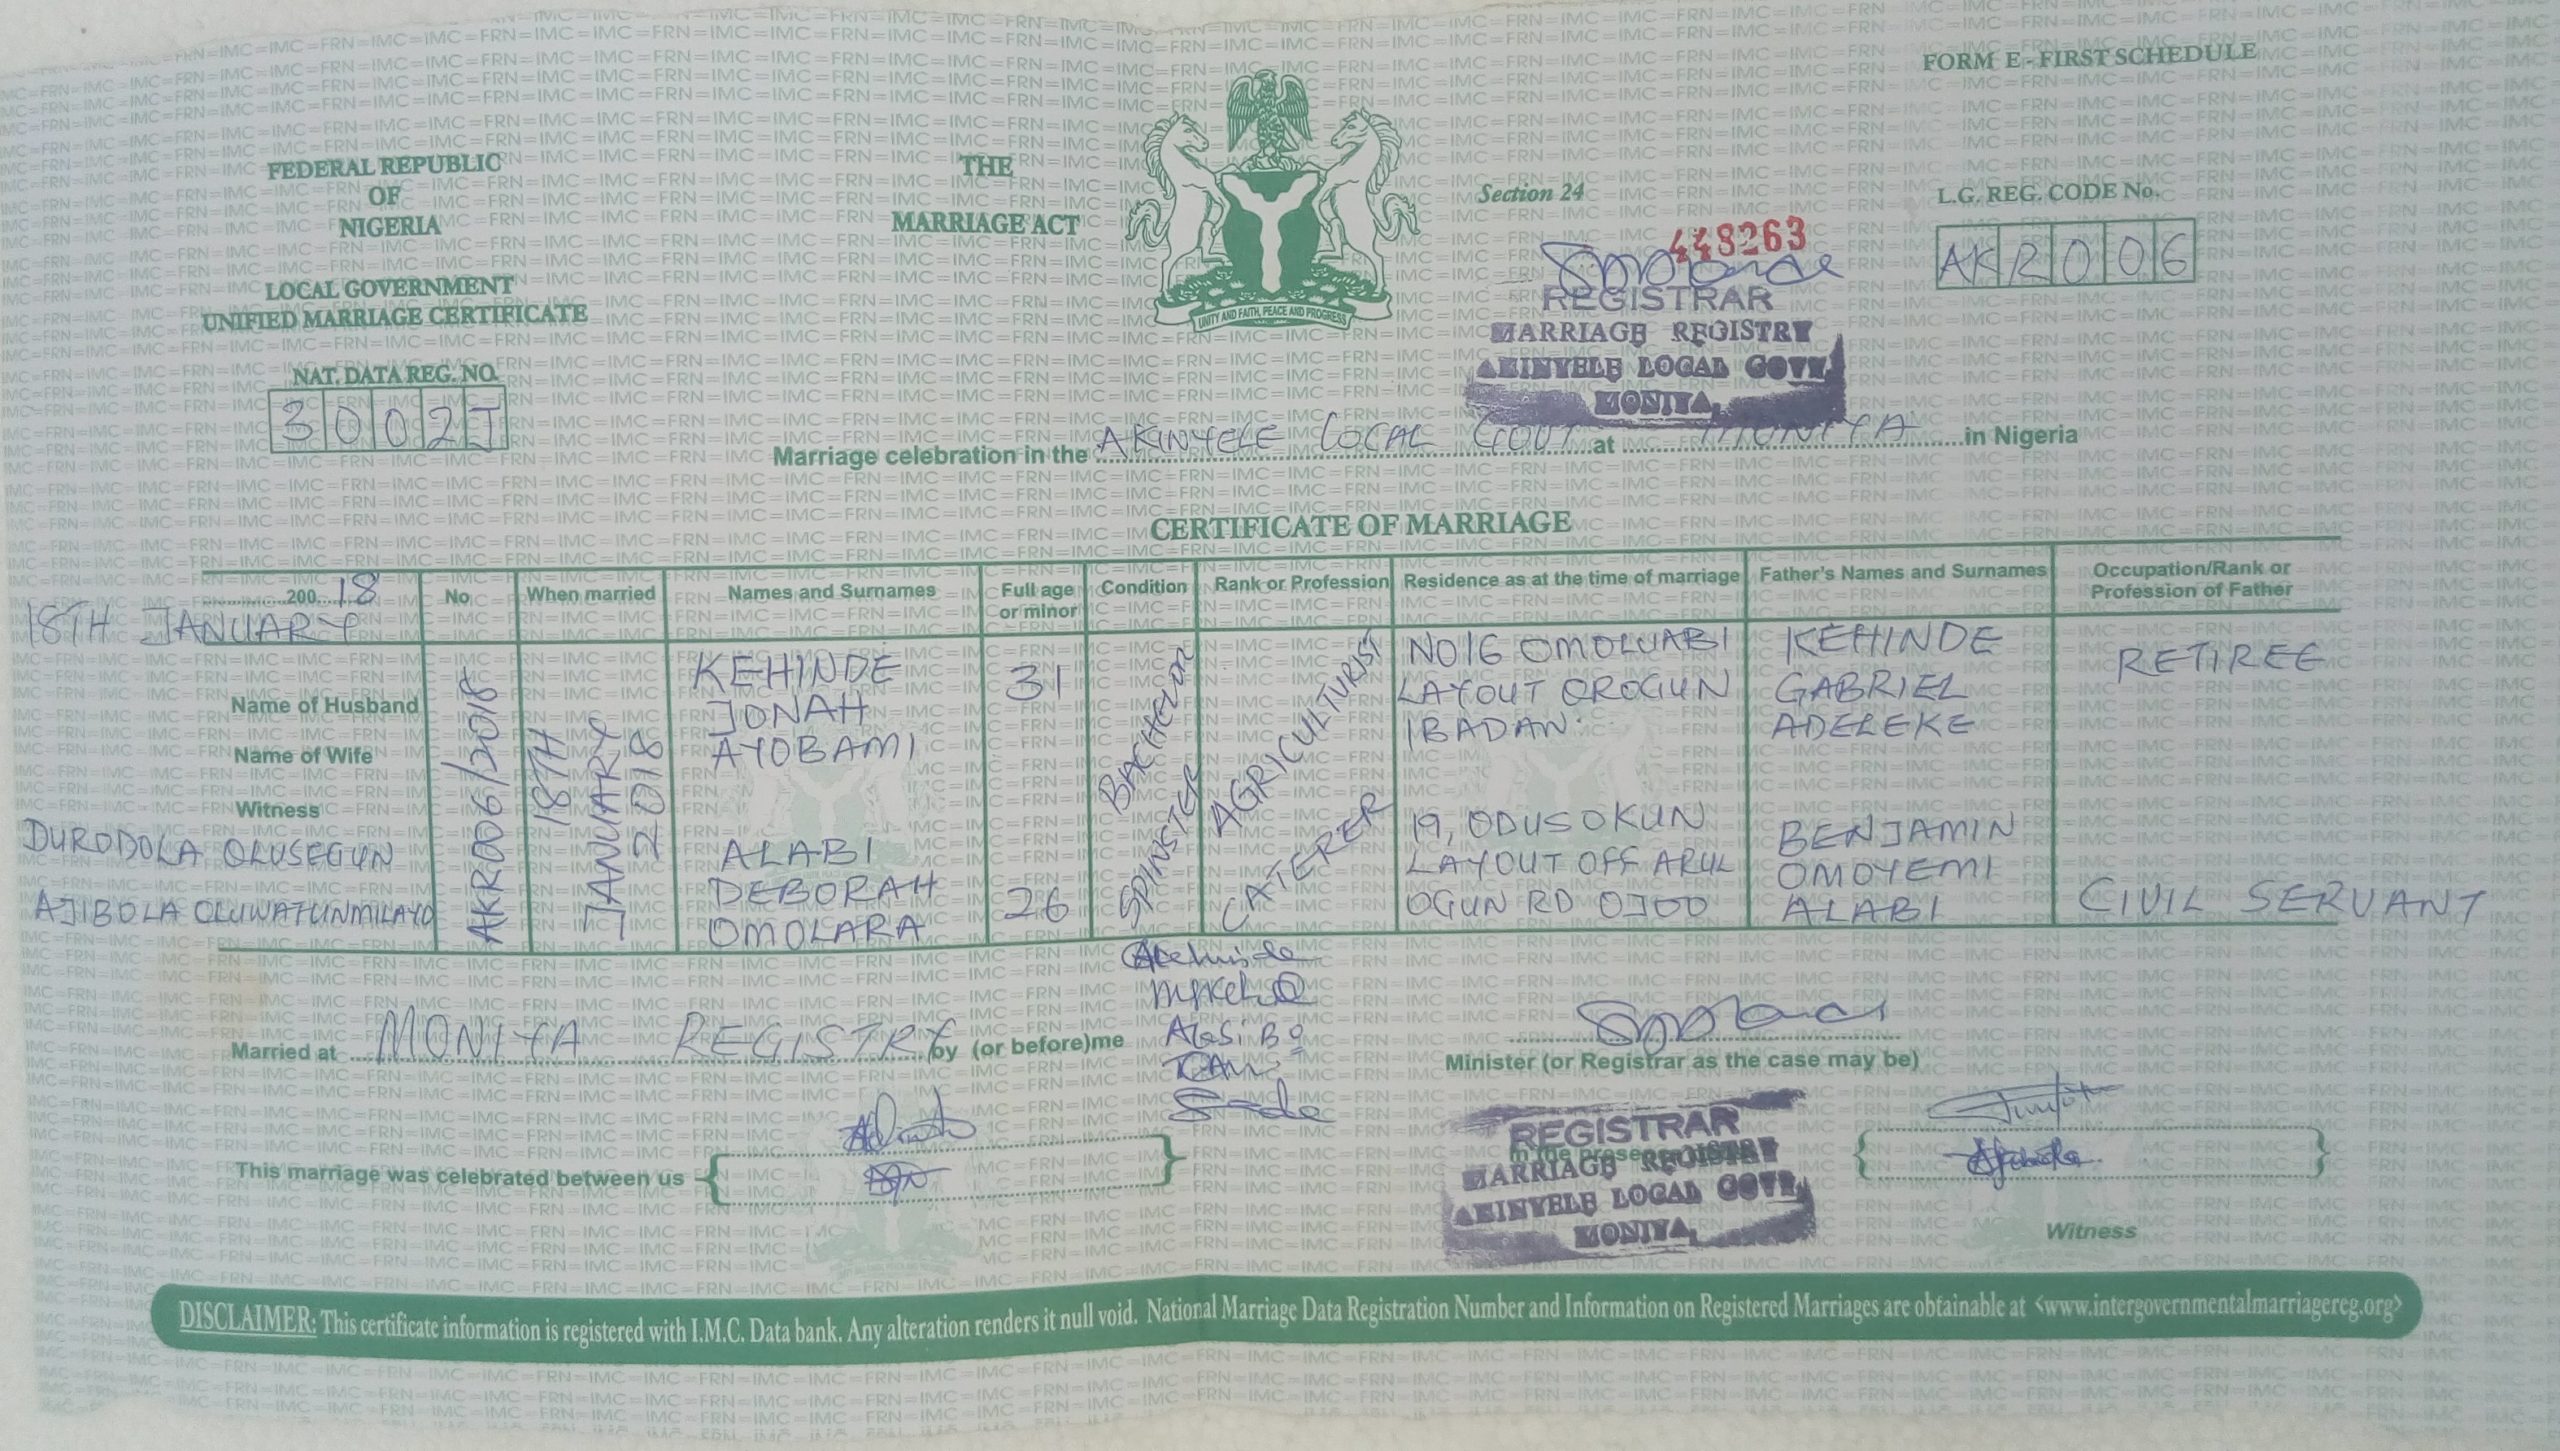 FORM E - FIRST SCHEDULE
FEDERAL REPUBLIC
OF
NIGERIA
THE
MARRIAGE ACT
Section 24
L.G. REG. CODE No.
AKR006
448263
LOCAL GOVERNMENT
UNIFIED MARRIAGE CERTIFICATE
UNITY AND FAITH, PEACE AND PROGRESS
REGISTRAR
MARRIAGE REGISTRY
AKINYELE LOCAL GOVT,
MONIYA,
NAT. DATA REG. NO.
3002J
Marriage celebration in the AKINYELE LOCAL GOVT at MONIYA in Nigeria
CERTIFICATE OF MARRIAGE
200 18
18TH JANUARY
No
When married
Names and Surnames
Full age
or minor
Condition
Rank or Profession
Residence as at the time of marriage
Father's Names and Surnames
Occupation/Rank or
Profession of Father
Name of Husband
Name of Wife
Witness
DURODOLA OLUSEGUN
AJIBOLA OLUWATUNMILAYO
AKR006/2018
18TH
JANUARY
2018
KEHINDE
JONAH
AYOBAMI
31
BACHELOR
AGRICULTURIST
NO16 OMOLUABI
LAYOUT OROGUN
IBADAN.
KEHINDE
GABRIEL
ADELEKE
RETIREE
ALABI
DEBORAH
OMOLARA
26
SPINSTER
CATERER
19, ODUSOKUN
LAYOUT OFF ARUL
OGUN RD OJOO
BENJAMIN
OMOYEMI
ALABI
CIVIL SERVANT
Married at MONIYA REGISTRY by (or before)me
Minister (or Registrar as the case may be)
This marriage was celebrated between us
REGISTRAR
In the presence
MARRIAGE REGISTRY
AKINYELE LOCAL GOVT,
MONIYA,
Witness
DISCLAIMER: This certificate information is registered with I.M.C. Data bank. Any alteration renders it null void. National Marriage Data Registration Number and Information on Registered Marriages are obtainable at <www.intergovernmentalmarriagereg.org>